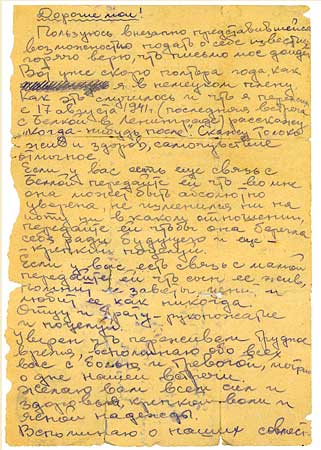 Дорогие мои!
Пользуюсь внезапно представившейся
возможностью подать о себе известие
горячо верю, что письмо мое дойдет
Вот уже скоро полтора года, как
я в немецком плену
Как это случилось и что я пережил
с 17 августа 1941 (последняя встреча
с Белкой в Ленинграде) расскажу
когда-нибудь после! Скажу только
жив и здоров, самочувствие
отличное.
Если у вас есть еще связь с
Белкой передайте ей что во мне
она может быть абсолютно
уверена, не изменился ни на
йоту ни в каком отношении,
передайте ей чтобы она берегла
себя ради будущего и еще -
крепкий поцелуй.
Если у вас есть связь с мамой
передайте ей, что сын ее жив,
помнит ее заветы, ценит и
любит ее как никогда.
Отцу и брату - рукопожатие
и поцелуй.
Уверен что переживем трудное
время, вспоминаю обо всех
вас с болью и тревогой, мечтаю
о дне нашей встречи
Желаю вам всех сил и
здоровья, крепкой воли и
ясной надежды
Вспоминаю о наших совмест